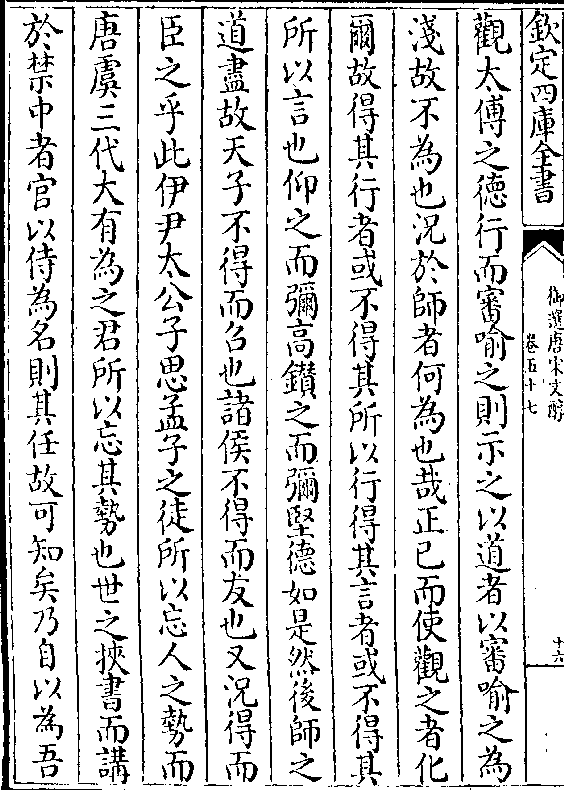 欽定四庫全書
御選唐宋文醇
卷五十七
十六
觀太傅之徳行而審喻之則示之以道者以審喻之為
淺故不為也況於師者何為也哉正己而使觀之者化
爾故得其行者或不得其所以行得其言者或不得其
所以言也仰之而彌高鑚之而彌堅徳如是然後師之
道盡故天子不得而召也諸侯不得而友也又況得而
臣之乎此伊尹太公子思孟子之徒所以忘人之勢而
唐虞三代大有為之君所以忘其勢也世之挾書而講
於禁中者官以侍為名則其任故可知矣乃自以為吾